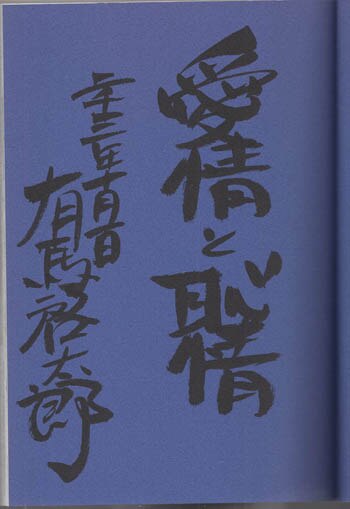 愛情と恥情
二十三年十月一日
有馬啓太郎